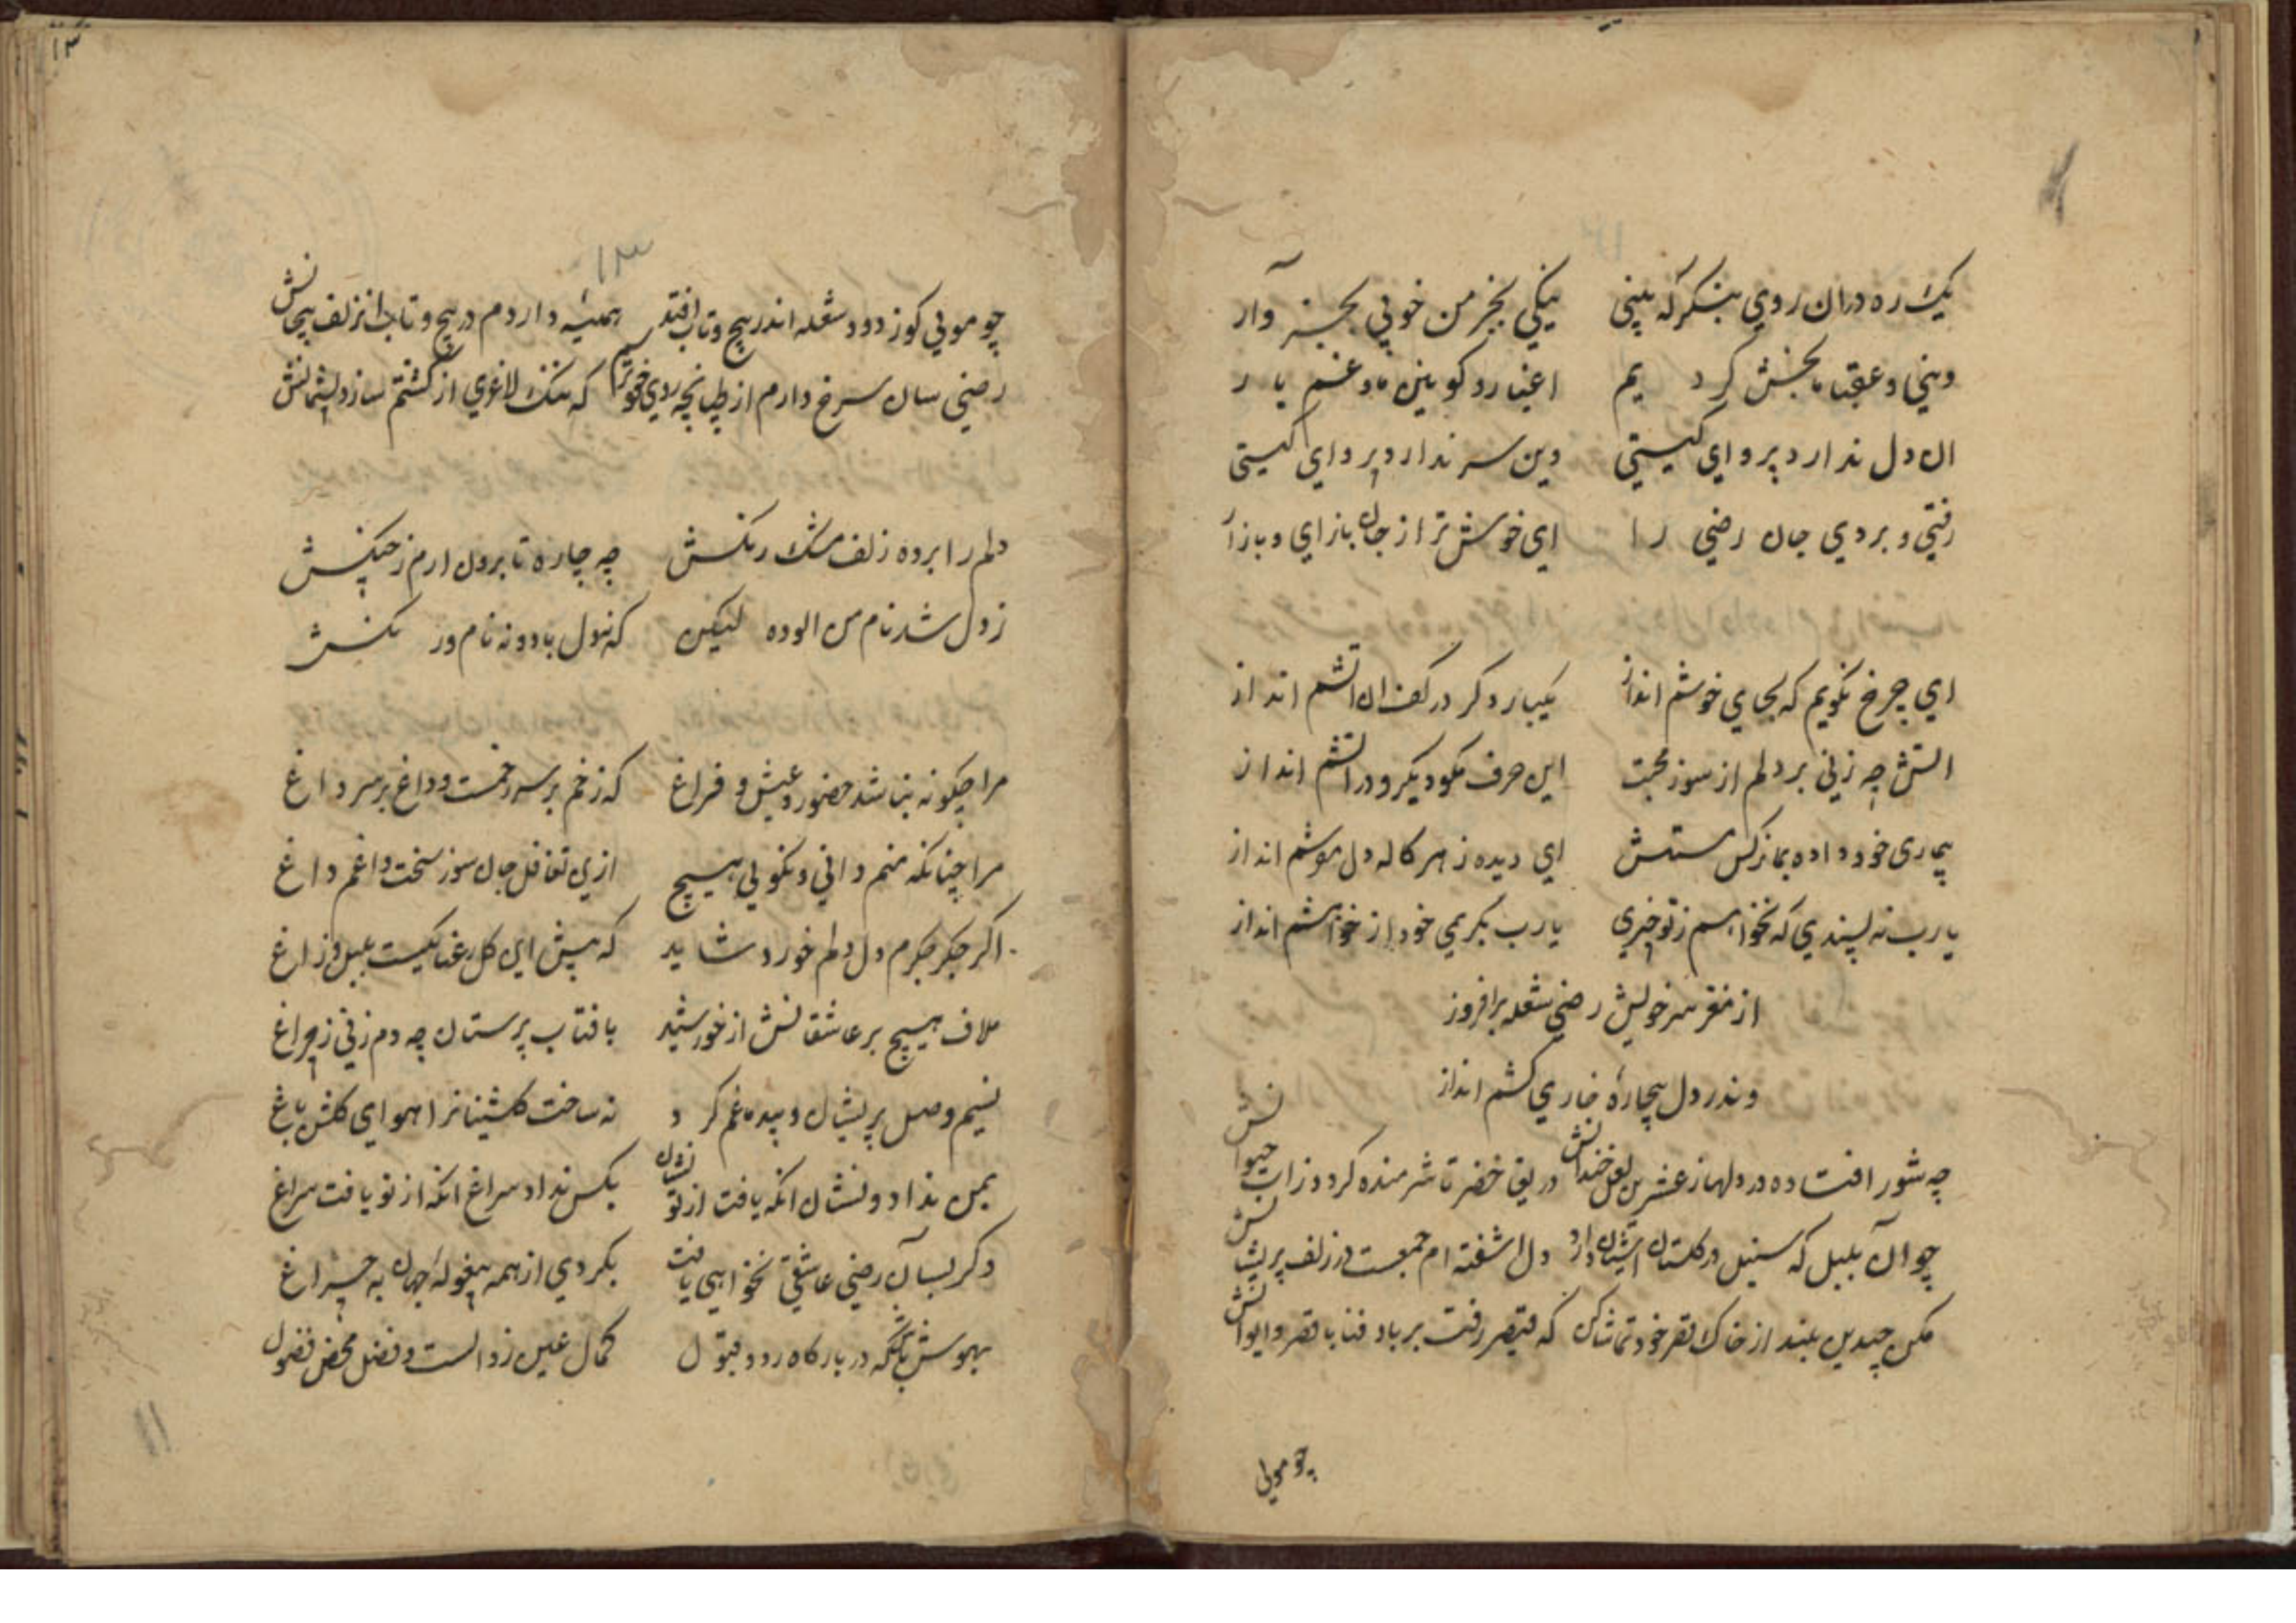 یک ره دران روی بنگر که بینی نیکی بخرمن خوبی بخروار
دینی و عقبا بخش کردیم اغیار و کونین ما و غم یار
ان دل ندارد پروای گیتی وین سر ندارد پروای گیتی
رفتی و بردی جان رضی را ای خوش تر از جان بازای و بازآر
ای چرخ نگویم که بجای خوشم انداز یکبار دگر در کف ان اتشم انداز
اتش چه زنی بر دلم از سوز محبت این حرف مگو دیگر و در اتشم انداز
بیماری خود داده بما نرگس مستش ای دیده ز هر کاله دل موشم انداز
یا رب نه پسندی که نخواهم ز تو خیری یا رب بکریمی خود از خواهشم انداز
از مغز سر خویش رضی شعله برافروز
وندر دل بیچاره خاری کشم انداز
چه شور افتاده در دلها ز عشق لعل خندانش دریغ خضر تا شرمنده گردد ز اب حیوانش
چو آن بلبل که سنبل در گلستان اشیان دارد دل اشفته ام جمعست در زلف پریشانش
مکن چندین بلند از خاک قصر خود تماشا کن که قیصر رفت بر باد فنا با قصر و ایوانش
چو مویی
۱۳
۱۳
چو مویی کوز دود شعله اندر پیچ و تاب افتد همیشه دارم در پیچ و تاب از زلف پیچانش
رضی سان سرخ دارم از طپانچه روی خود ترسم که ننگ لاغری از کشتنم سازد پشیمانش
دلم را برده زلف مشک رنگش چه چاره تا برون ارم ز چنگش
ز دل شد نام من الوده لیکن که نه دل باد و نه نام و ننگش
مرا چگونه نباشد حضور و عیش و فراغ که زخم بر سر زخمست و داغ بر سر داغ
مرا چنانکه منم دانی و نگویی هیچ ازین تغافل جان سوز سخت داغم داغ
اگر جگر جگرم دل دلم خورد شاید که پیش این گل رعنا یکیست بلبل و زاغ
ملاف هیچ بر عاشقانش از خورشید بافتاب پرستان چه دم زنی ز چراغ
نسیم وصل پریشان و بیدماغم کرد نه ساخت گلشنیانرا هوای گلشن باغ
بمن نداد و نشان انکه یافت از تو نشان بکس نداد سراغ انکه از تو یافت سراغ
دگر بسان رضی عاشقی نخواهی یافت بگردی از همه بیغوله جهان به چراغ
بهوش باش که در بارگاه رد و قبول کمال عین زوالست و فضل محض فضول
۱۱